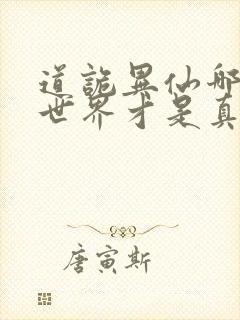 道诡异仙哪
世界才是真
唐寅斯